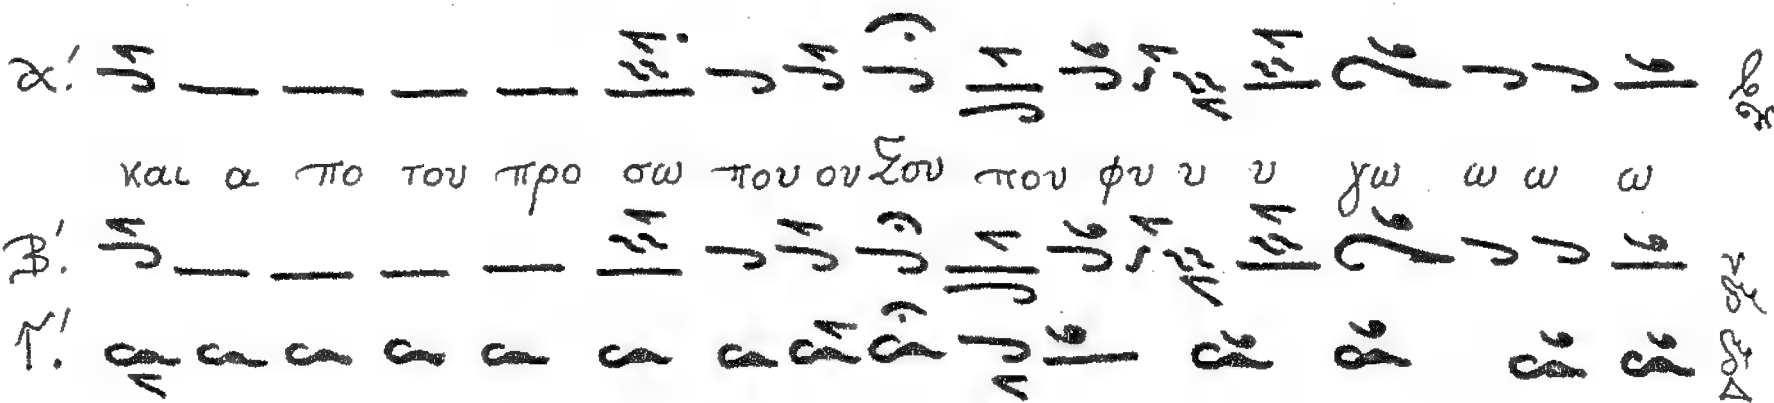 α'.
και α πο του προ σω που ου Σου που φυ υ υ γω ω ω ω
Β'.
Γ'.